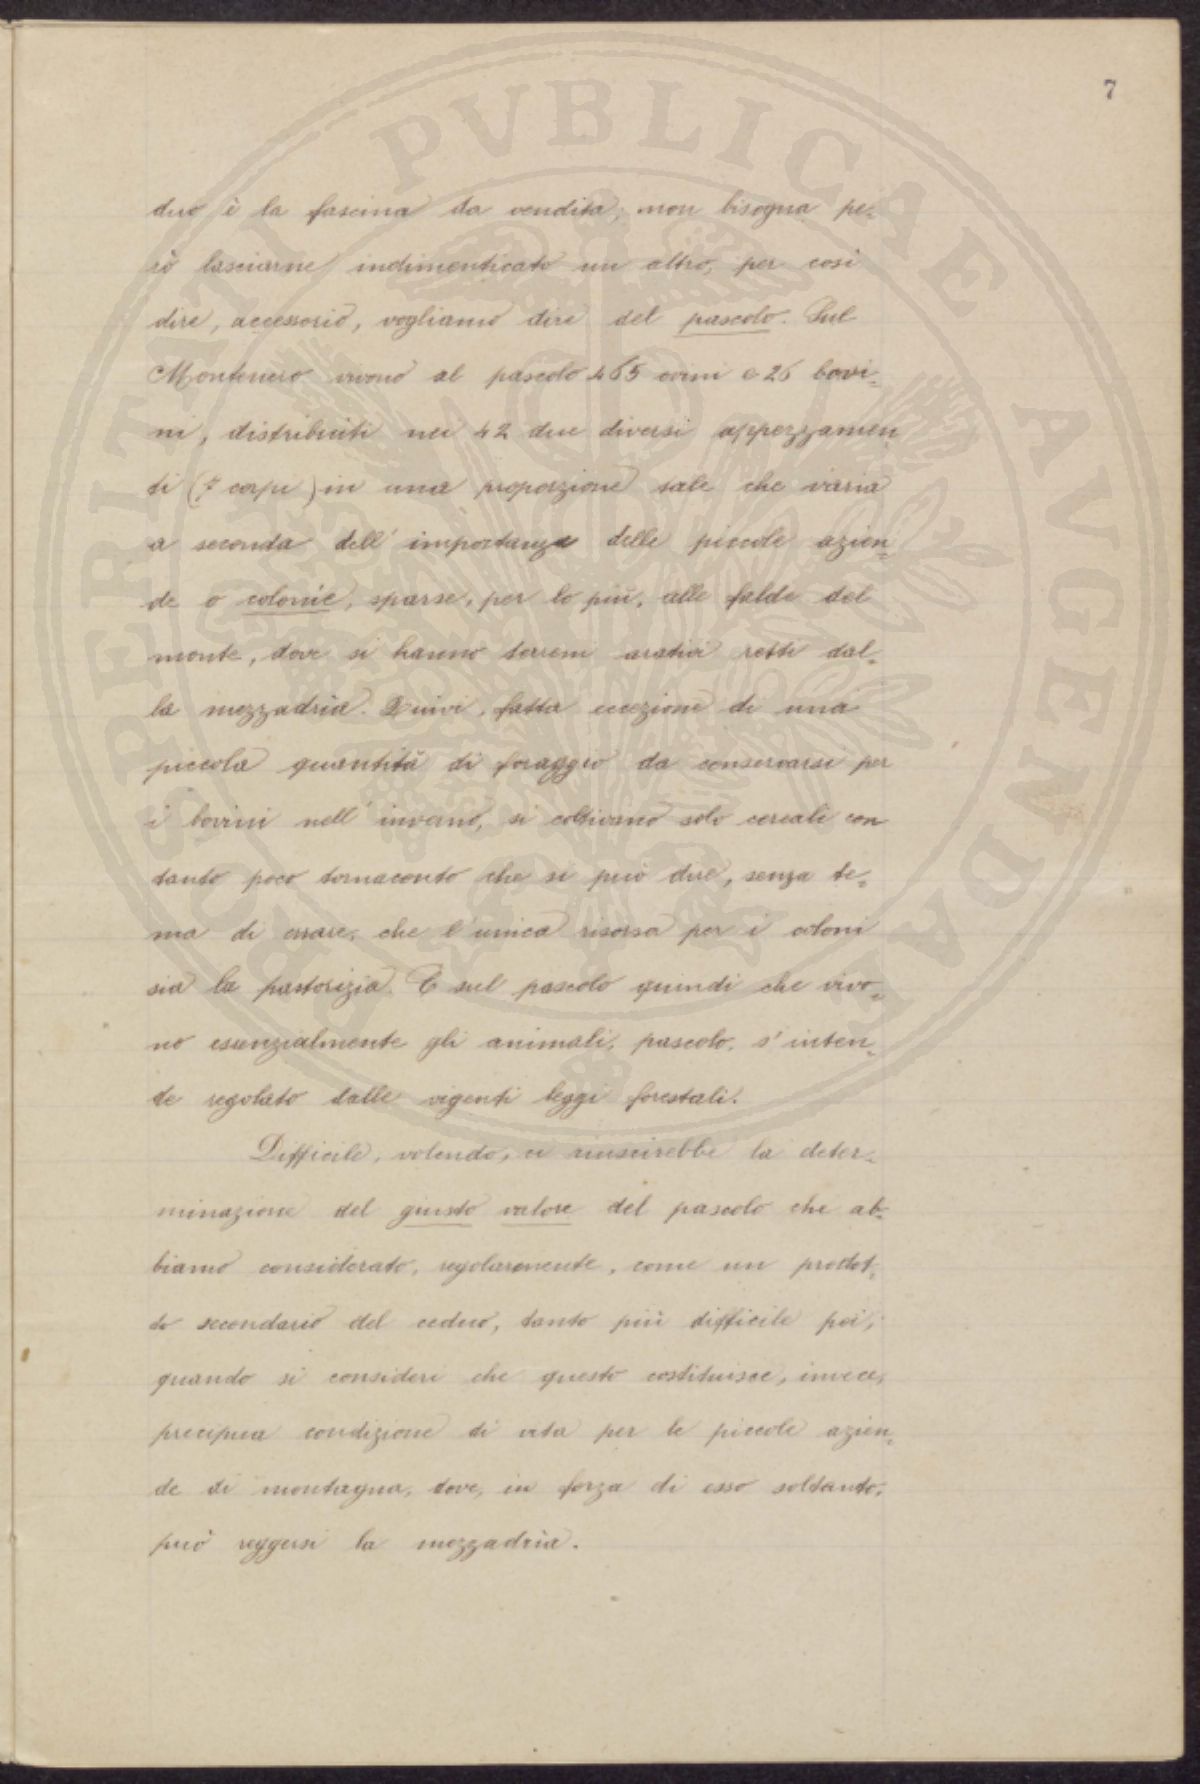 7
duo è la fascina da vendita; non bisogna pe=
rò lasciarne indimenticato un altro, per così
dire, accessorio, vogliamo dire del pascolo. Sul
Montenero vivono al pascolo 465 ovini e 26 bovi=
ni, distribuiti nei 42 due diversi appezzamen
ti (7 corpi) in una proporzione tale che varia
a seconda dell' importanza delle piccole azien=
de o colonie, sparse, per lo più, alle falde del
monte, dove si hanno terreni arativi retti dal=
la mezzadria. Quivi, fatta eccezione di una
piccola quantità di foraggio da conservarsi per
i bovini nell' inverno, si coltivano solo cereali con
tanto poco tornaconto che si può dire, senza te=
ma di errare, che l'unica risorsa per i coloni
sia la pastorizia. È sul pascolo quindi che vivo=
no esenzialmente gli animali, pascolo, s'inten=
de regolato dalle vigenti leggi forestali.
Difficile, volendo, ci riuscirebbe la deter=
minazione del giusto valore del pascolo che ab=
biamo considerato, regolarmente, come un prodot=
to secondario del ceduo, tanto più difficile poi,
quando si consideri che questo costituisce, invece,
precipua condizione di vita per le piccole azien=
de di montagna, dove, in forza di esso soltanto,
può reggersi la mezzadria.
PROSPERITATI PVBLICAE AVGENDAE